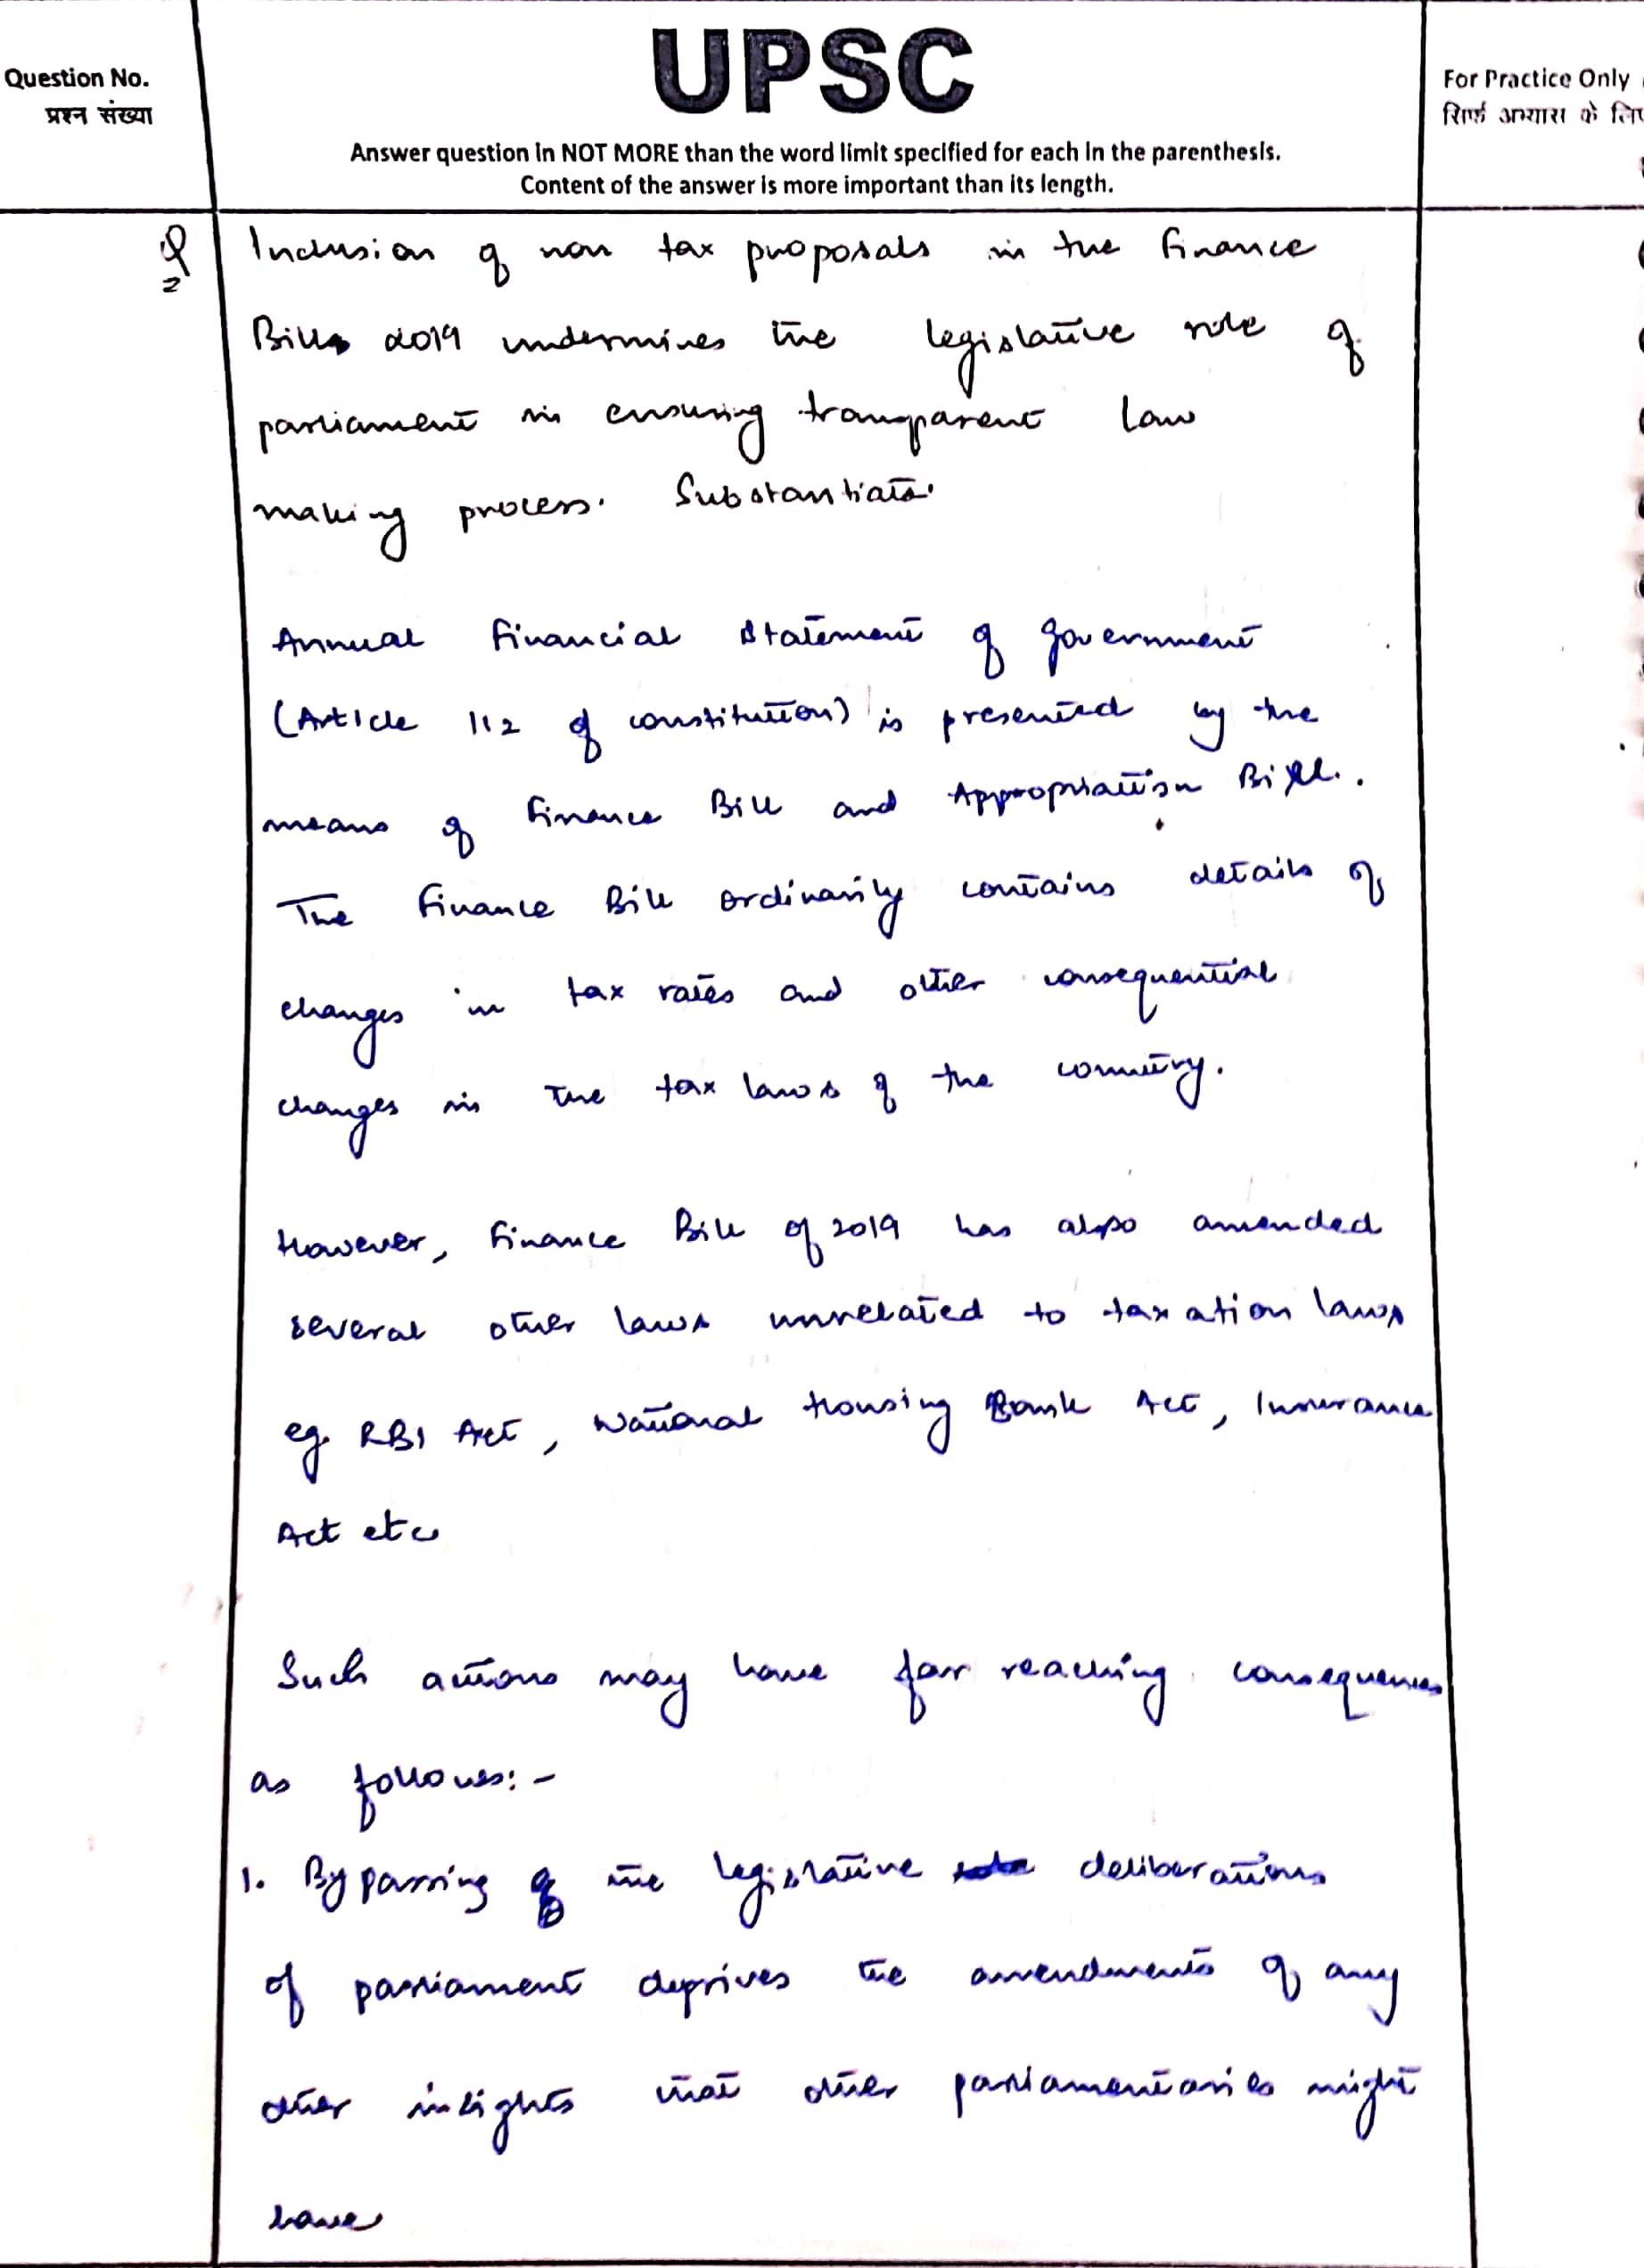 UPSC
Question No.
प्रश्न संख्या
For Practice Only
सिर्फ अभ्यास के लिए
Answer question in NOT MORE than the word limit specified for each in the parenthesis.
Content of the answer is more important than its length.
Q2 Inclusion of non tax proposals in the Finance
Bill 2019 undermines the legislative role of
parliament in ensuring transparent law
making process. Substantiate.
Annual Financial Statement of government
(Article 112 of constitution) is presented by the
means of Finance Bill and Appropriation Bill.
The Finance Bill ordinarily contains details of
changes in tax rates and other consequential
changes in the tax laws of the country.
However, Finance Bill of 2019 has also amended
several other laws unrelated to taxation laws
eg. RBI Act, National Housing Bank Act, Insurance
Act etc
Such actions may have far reaching consequences
as follows:-
1. Bypassing of the legislative deliberations
of parliament deprives the amendments of any
other insights that other parliamentaries might
have